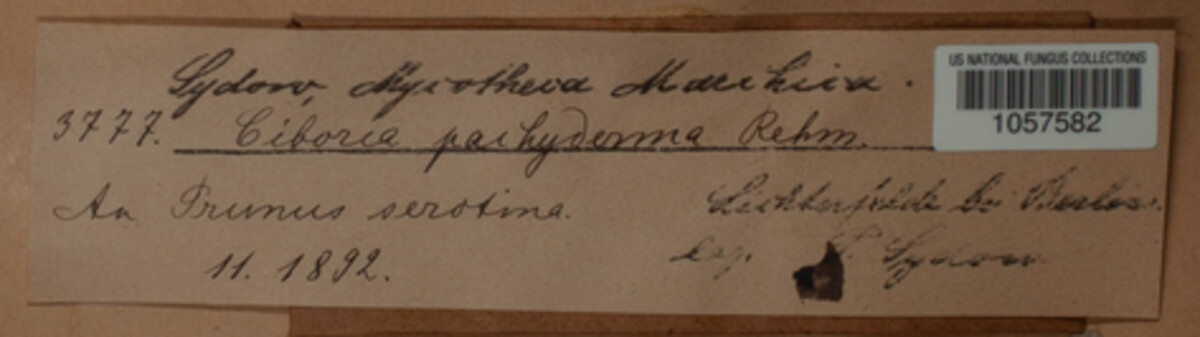 Sydow, Mycotheca Marchica.
3777. Ciboria pachyderma Rehm.
An Prunus serotina.
11. 1892.
Lichterfelde bei Berlin.
leg. P. Sydow
US NATIONAL FUNGUS COLLECTIONS
1057582